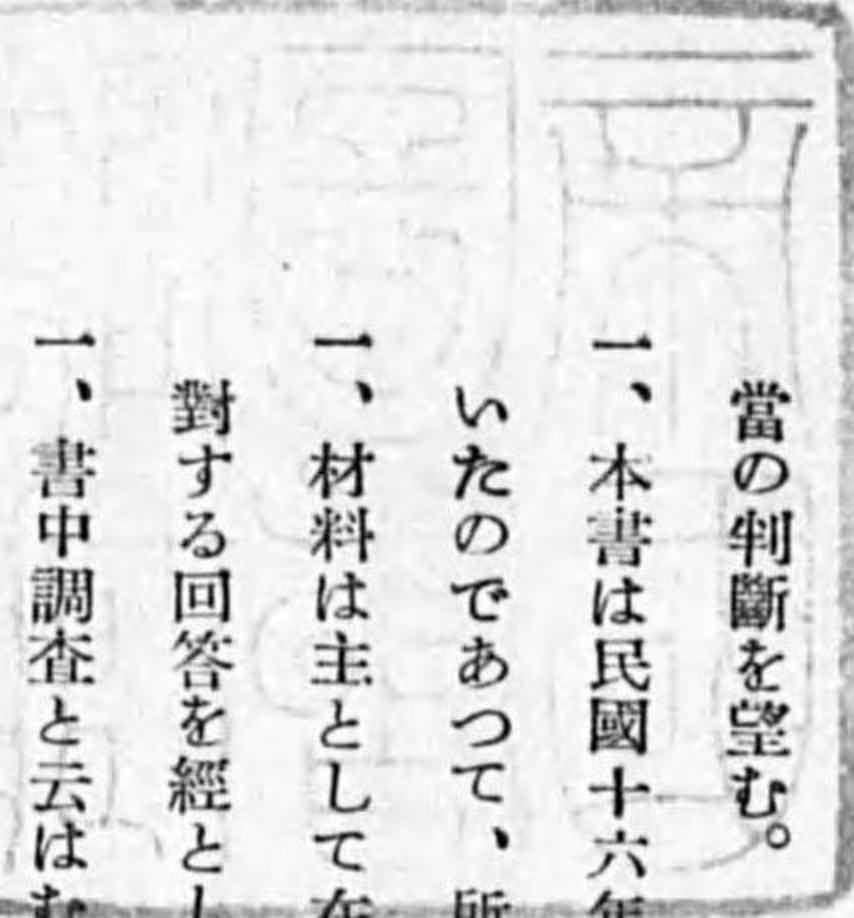 當の判斷を望む。
一、本書は民國十六年
いたのであつて、所
一、材料は主として在
對する回答を經とし
一、書中調査と云はむ